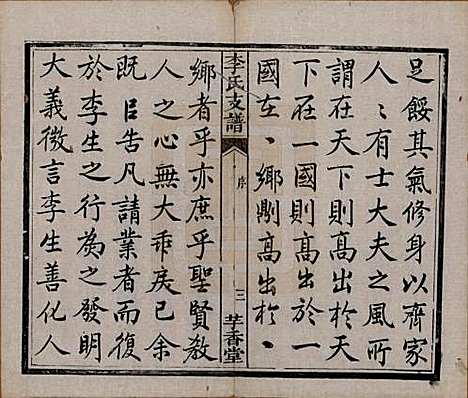 足餒其氣修身以齊家
人〻有士大夫之風所
謂在天下則高出於天
下在一國則高出於一
國在〻鄉則高出於〻
李氏支譜
序
三
芋香堂
鄉者乎亦庶乎聖賢教
人之心無大乖戾已余
既以告凡請業者而復
於李生之行為之發明
大義微言李生善化人